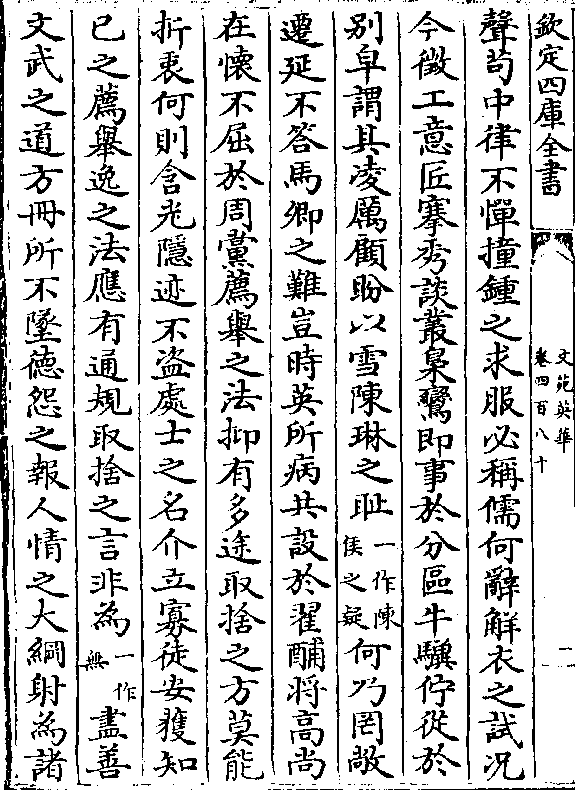 欽定四庫全書
文苑英華
卷四百八十
二
聲茍中律不憚撞鍾之求服必稱儒何辭解衣之試況
今徵工意匠搴秀談叢梟鸞即事於分區牛驥佇從於
別皁謂其凌厲顧盼以雪陳琳之耻一作陳侯之疑何乃罔敞
遷延不答馬卿之難豈時英所病共設於翟酺將高尚
在懷不屈於周黨薦舉之法抑有多途取捨之方莫能
折衷何則含光隱迹不盜處士之名介立寡徒安獲知
已之薦舉逸之法應有通規取捨之言非為一作無盡善
文武之道方冊所不墜德怨之報人情之大綱射為諸